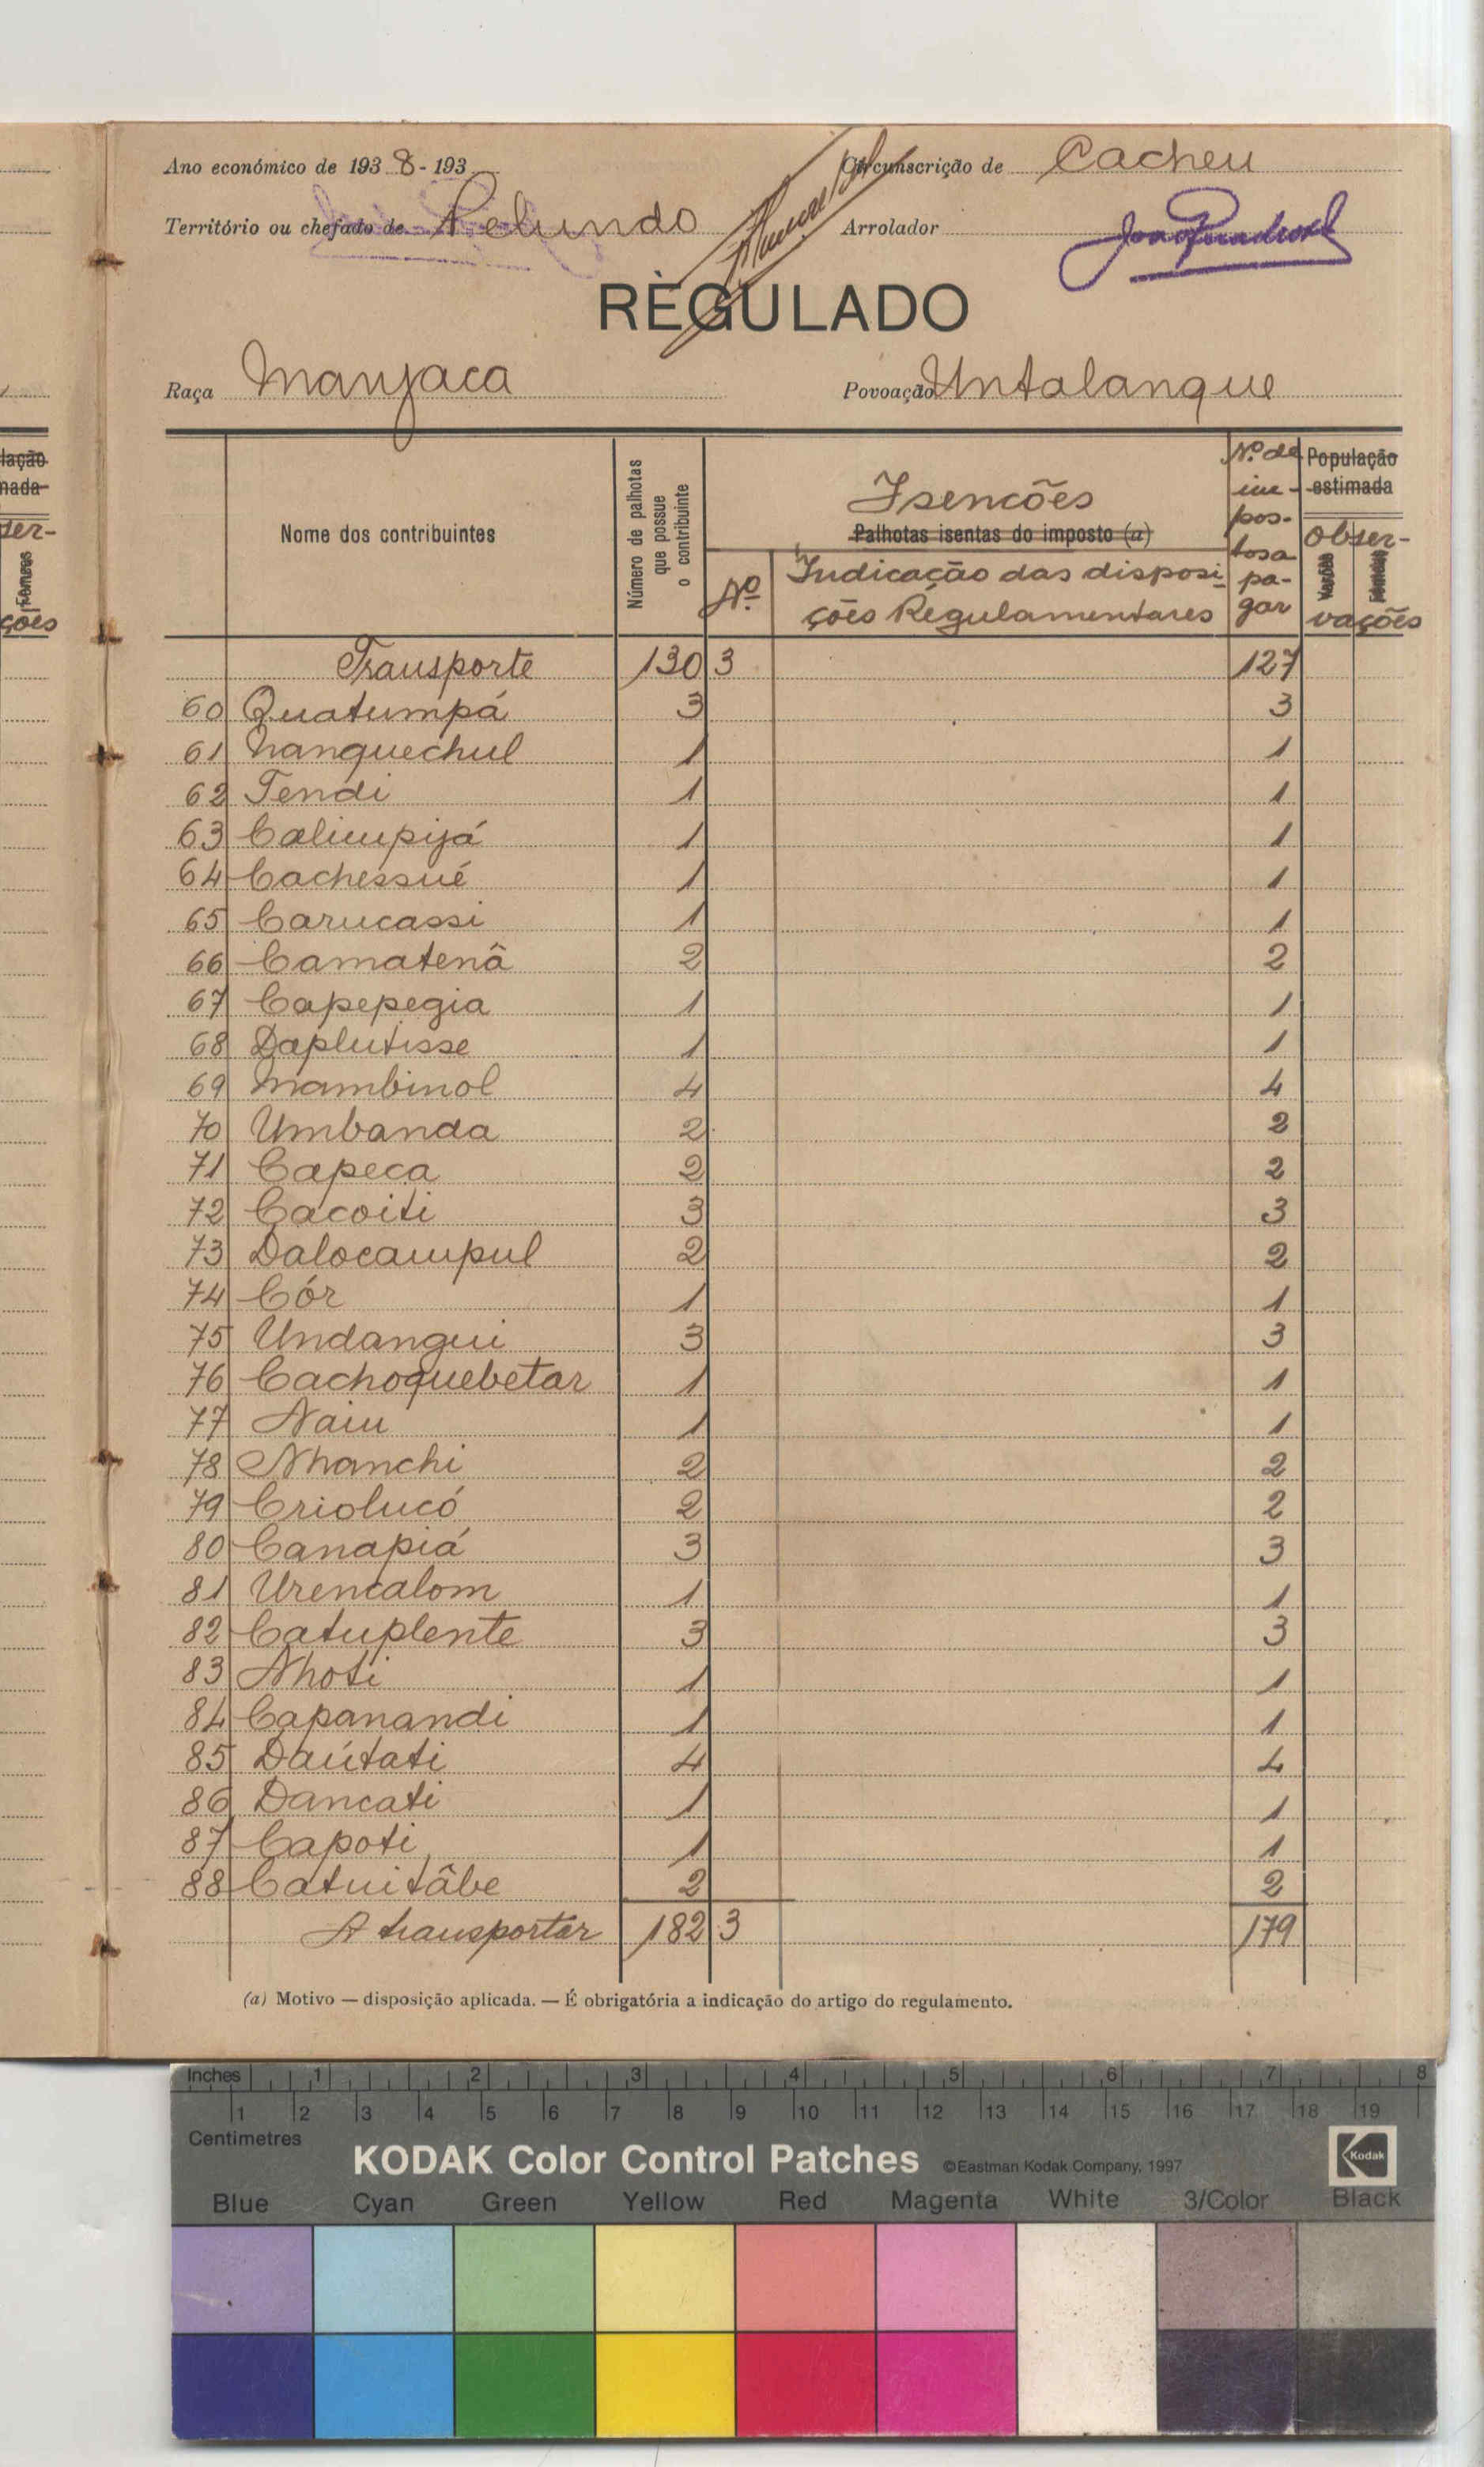 Ano económico de 1938-193
Circunscrição de Cacheu
Território ou chefado de Pelundo
Arrolador
RÈGULADO
Raça Manjaca
Povoação Untalanque
lação
nada
ser-
Fêmeas
ções
Nome dos contribuintes
Número de palhotas que possue o contribuinte
Isencões
Palhotas isentas do imposto (a)
Nº
Indicação das disposi-
ções Regulamentares
Nº de
im-
pos-
tos a
pa-
gar
População
estimada
Obser-
Varões
Fêmeas
vações
Transporte 130 3 127
60 Quatumpá 3 3
61 Nanquechul 1 1
62 Tendi 1 1
63 Calimpijá 1 1
64 Cachessué 1 1
65 Carucassi 1 1
66 Camatenâ 2 2
67 Capepegia 1 1
68 Daplutisse 1 1
69 Mambinol 4 4
70 Umbanda 2 2
71 Capeca 2 2
72 Cacoiti 3 3
73 Dalocampul 2 2
74 Cór 1 1
75 Undangui 3 3
76 Cachoquebetar 1 1
77 Naim 1 1
78 Nhanchi 2 2
79 Criolucó 2 2
80 Canapiá 3 3
81 Urencalom 1 1
82 Catuplente 3 3
83 Nhoti 1 1
84 Capanandi 1 1
85 Daútati 4 4
86 Dancati 1 1
87 Capoti 1 1
88 Catuitâbe 2 2
A transportar 182 3 179
(a) Motivo — disposição aplicada. — É obrigatória a indicação do artigo do regulamento.
Inches 1 2 3 4 5 6 7 8
1 2 3 4 5 6 7 8 9 10 11 12 13 14 15 16 17 18 19
Centimetres
KODAK Color Control Patches ©Eastman Kodak Company, 1997 Kodak
Blue Cyan Green Yellow Red Magenta White 3/Color Black